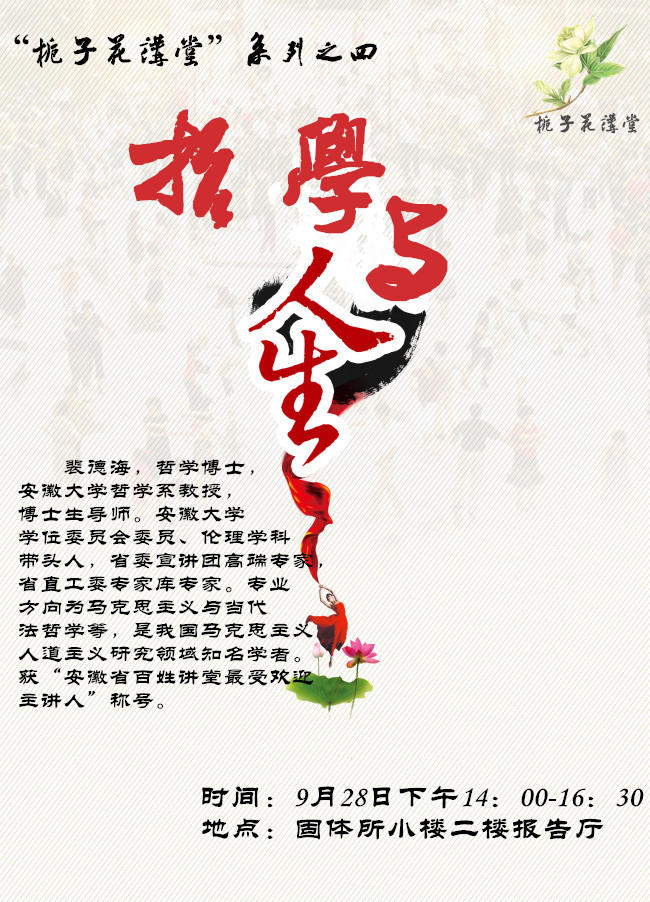 “栀子花講堂”系列之四
栀子花講堂
哲學与
人生
裴德海，哲学博士，
安徽大学哲学系教授，
博士生导师。安徽大学
学位委员会委员、伦理学科
带头人，省委宣讲团高端专家，
省直工委专家库专家。专业
方向为马克思主义与当代
法哲学等，是我国马克思主义
人道主义研究领域知名学者。
获“安徽省百姓讲堂最受欢迎
主讲人”称号。
时间：9月28日下午14：00-16：30
地点：固体所小楼二楼报告厅